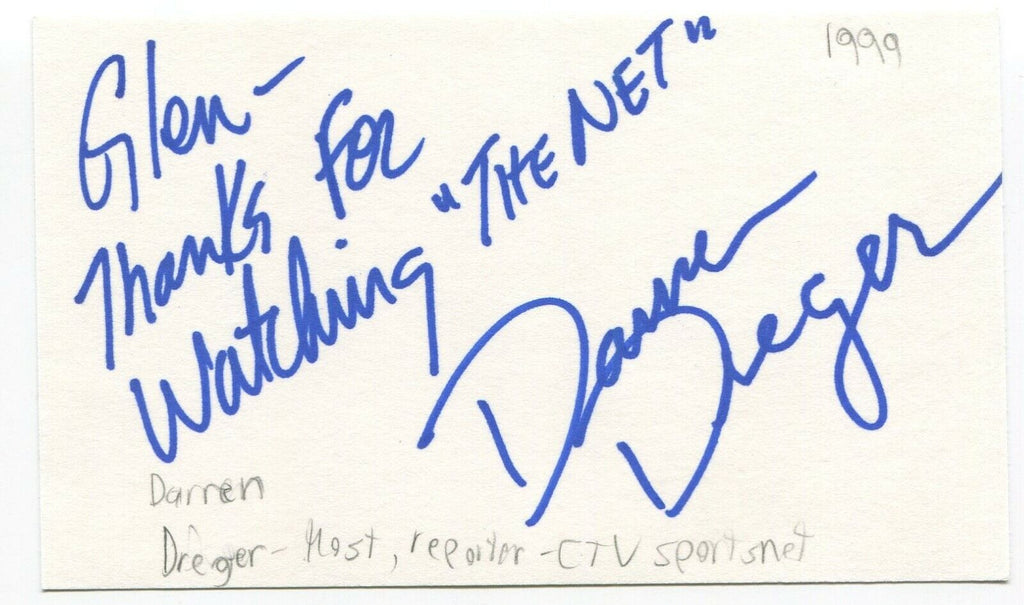 1999
Glen-
Thanks For
Watching "THE NET"
Darren Dreger
Darren
Dreger- Host, reporter - CTV sportsnet